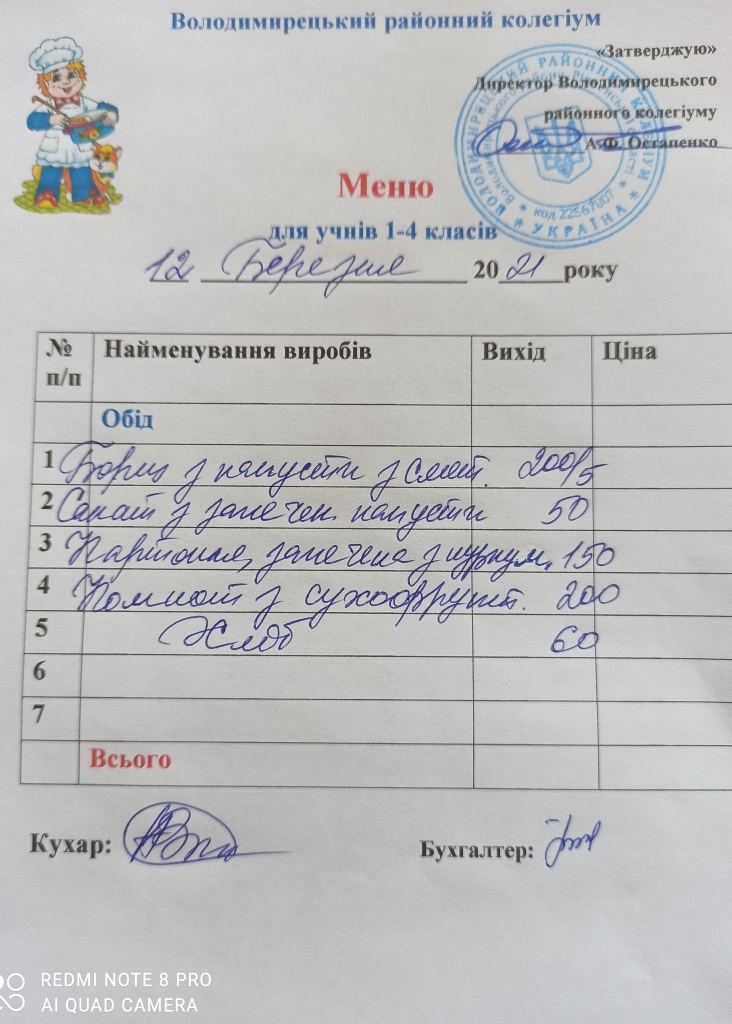 Володимирецький районний колегіум
«Затверджую»
Директор Володимирецького
районного колегіуму
А.Ф. Остапенко
код 22567007
УКРАЇНА
Меню
для учнів 1-4 класів
12 Березня 2021 року
№ п/п Найменування виробів Вихід Ціна
Обід
1 Борщ з капусти з смет. 200/5
2 Салат з запечен. капусти 50
3 Картопля, запечена з 150
4 Компот з сухофрукт. 200
5 Хліб 60
6
7
Всього
Кухар:
Бухгалтер:
REDMI NOTE 8 PRO
AI QUAD CAMERA